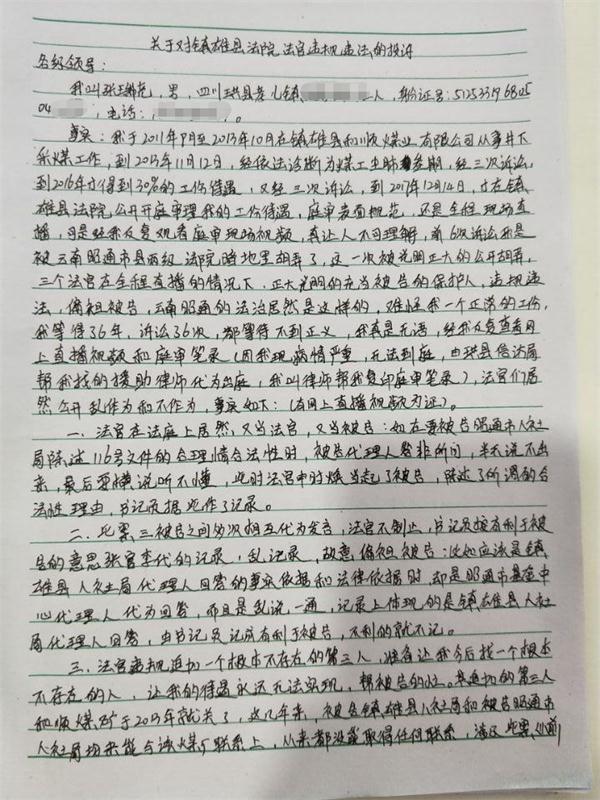 关于对镇雄县法院法官违规违法的投诉
各级领导:
我叫张瑞龙,男,四川珙县孝儿镇 人,身份证号:5125331976805
04 ,电话: 。
事实:我于2011年9月至2013年10月在镇雄县和顺煤业有限公司从事井下
采煤工作,到2015年11月12日,经依法诊断为煤工尘肺叁期,经三次诉讼,
到2016年才得到30%的工伤待遇,又经三次诉讼,到2017年12月14日,才在镇
雄县法院公开开庭审理我的工伤待遇,庭审表面规范,还是全程现场直
播,可是经我反复观看庭审现场视频,真让人不可理解,前6次诉讼我是
被云南昭通市县两级法院暗地里胡弄了,这一次被光明正大的公开胡弄,
三个法官在全程直播的情况下,正大光明的充当被告的保护人,违规违
法,偏袒被告,云南昭通的法治居然是这样的,难怪我一个正常的工伤,
我等待36年,诉讼36次,都等待不到正义,我真是无语,经我反复查看网
上直播视频和庭审笔录(因我现病情严重,无法到庭,由珙县信访局
帮我找的援助律师代为出庭,我叫律师帮我复印庭审笔录),法官们居
然公开乱作为和不作为,事实如下:(有网上直播视频为证)。
一、法官在法庭上居然又当法官,又当被告:如在要被告昭通市人社
局陈述116号文件的合理情合法性时,被告代理人答非所问,半天说不出
来,最后耍横说听不懂,此时法官申时焕当起了被告,陈述了所谓的合
法性理由,书记员据此作了记录。
二、此案三被告之间多次相互代为发言,法官不制止,书记员按有利于被
告的意思张官李代的记录,乱记录,故意偏袒被告:比如应该是镇
雄县人社局代理人回答的事实依据和法律依据时,却是昭通市基金中
心代理人代为回答,而且是乱说一通,记录上体现的是镇雄县人社
局代理人回答,由书记员记成有利于被告,不利的就不记。
三、法官违规追加一个根本不存在的第三人,准备让我今后找一个根本
不存在的人,让我的待遇永远无法实现,帮被告的忙。其追加的第三人
和顺煤矿于2013年就关了,这几年来,被告镇雄县人社局和被告昭通市
人社局均未能与该煤矿联系上,从来都没能取得任何联系,涉及此案以前